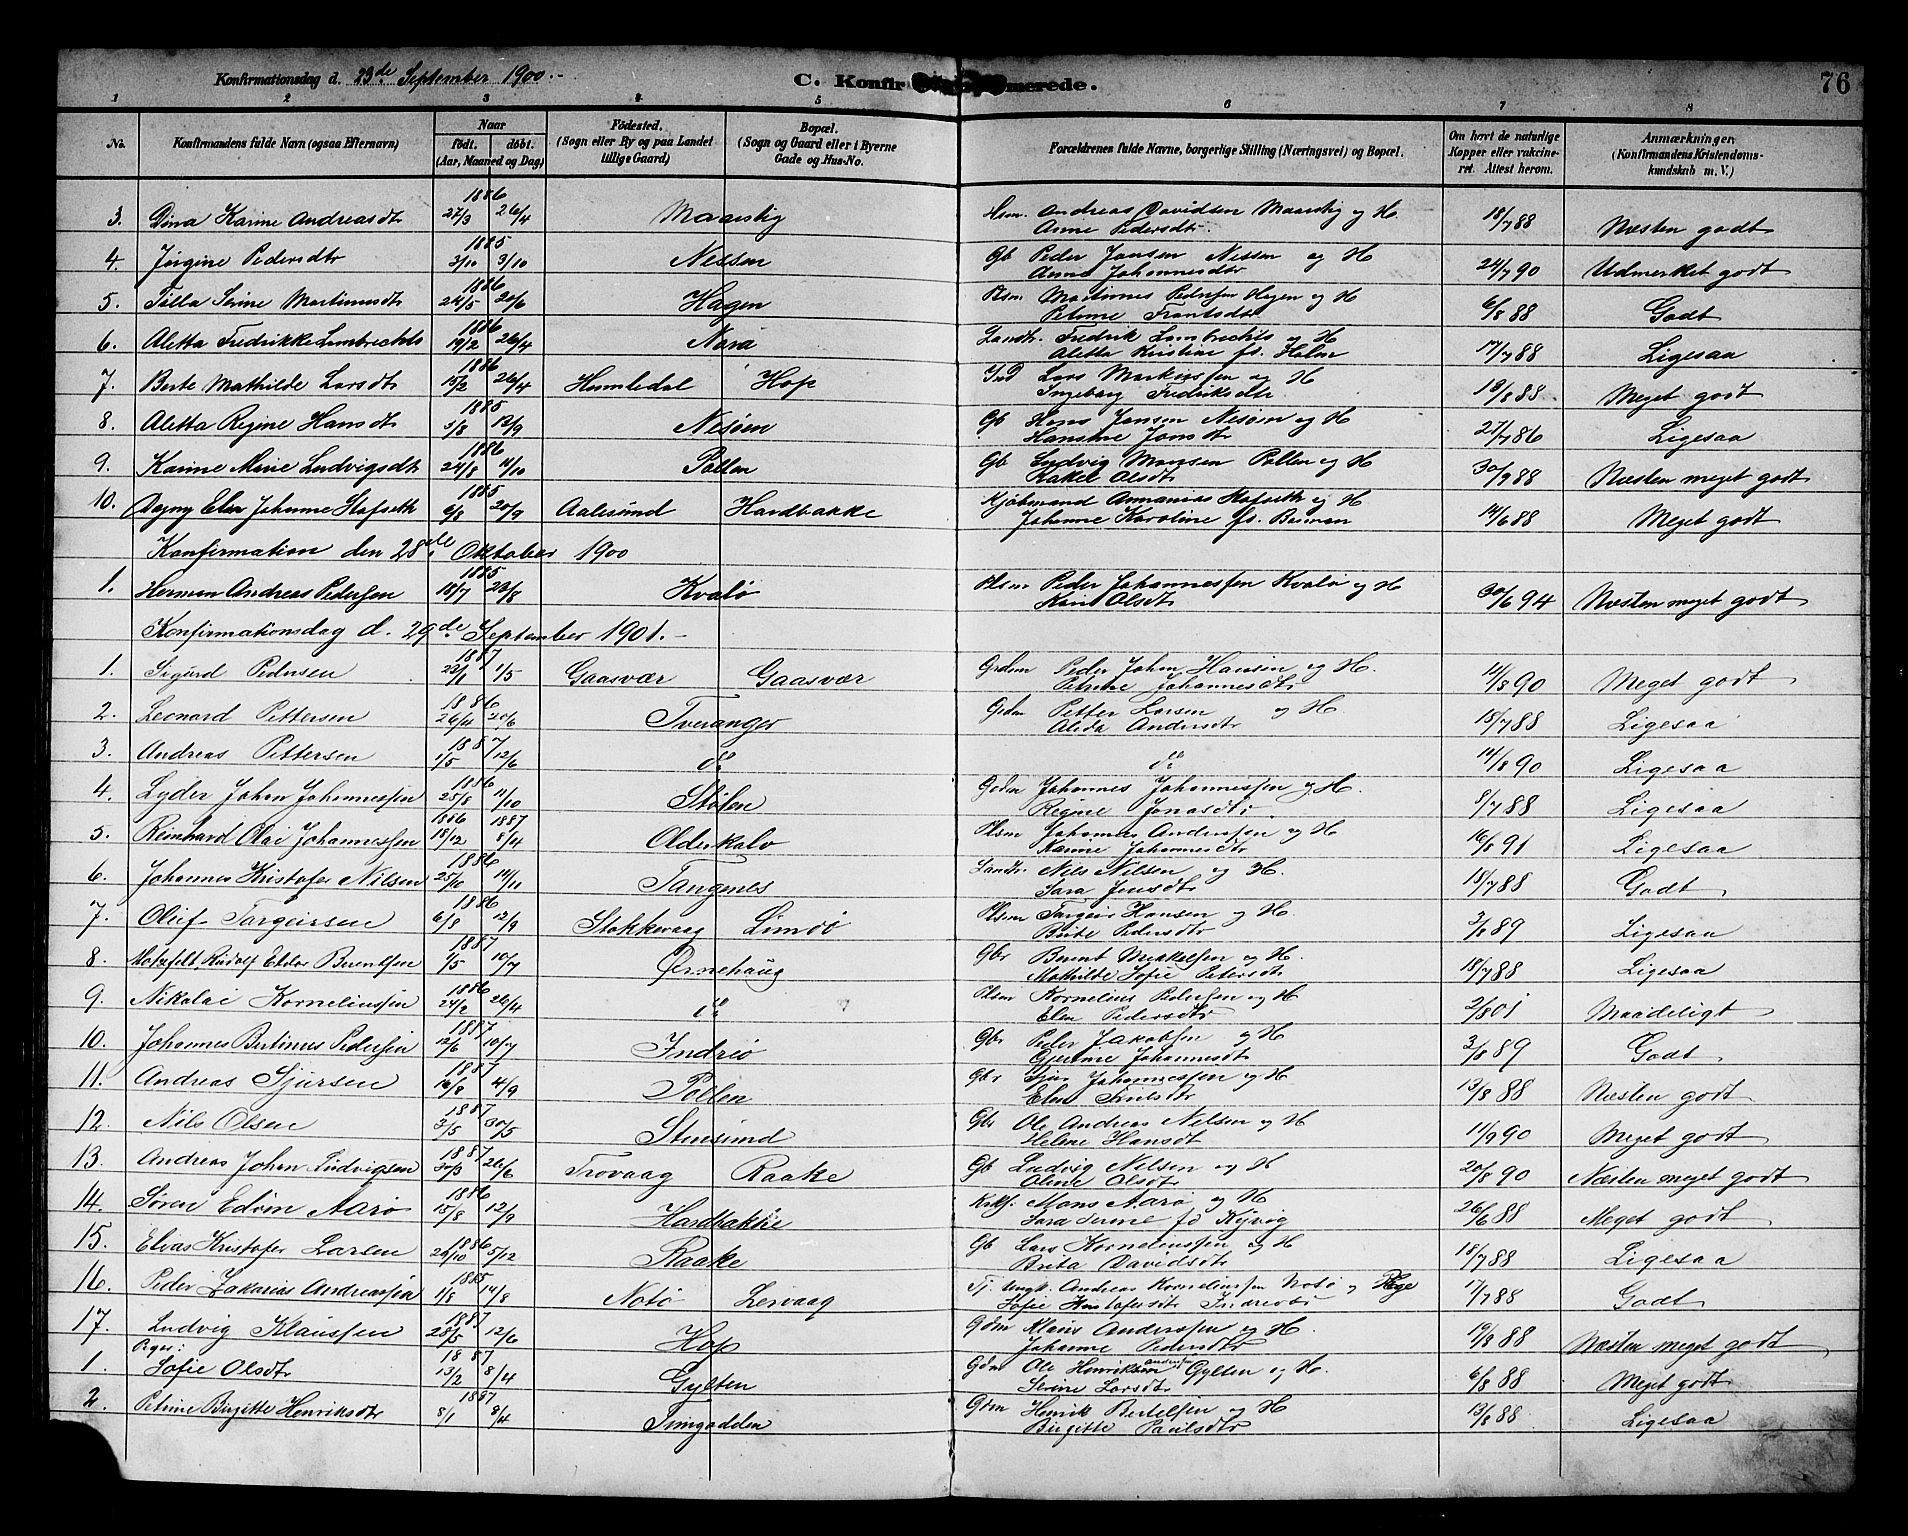 Konfirmationsdag d. 23de September 1900.-
C. Konfir merede.
76
1 2 3 4 5 6 7 8
No. Konfirmandens fulde Navn (ogsaa Efternavn) Naar født. døbt. (Aar, Maaned og Dag) Fødested. (Sogn eller By og paa Landet tillige Gaard) Bopæl. (Sogn og Gaard eller i Byerne Gade og Hus-No. Forældrenes fulde Navne, borgerlige Stilling (Næringsvei) og Bopæl. Om havt de naturlige Kopper eller vakcineret. Attest herom. Anmærkninger, (Konfirmandens Kristendomskundskab m. V.)
3. Dina Karine Andreasdtr 1886 27/3 26/4 Maarstig Hsm. Andreas Davidsen Maarstig og H Anne Pedersdtr. 18/7 88 Næsten godt
4. Jørgine Pedersdtr 1885 3/10 Nessen Gb Peder Jansen Nessen og H Anne Johannesdtr 24/7 90 Udmerket godt
5. Martinusdtr 1886 24/5 20/6 Hagen Martinus Pedersen Hagen og H Petrine Frantsdtr 6/8 88 Godt
6. Aletta Fredrikke Lambrechts 1886 19/2 26/4 Nara Landh. Fredrik Lambrechts og H Aletta Kristine fd. Holm 17/7 88 Ligesaa
7. Berte Mathilde Larsdtr 1886 15/2 26/4 Humledal Hop Ind Lars Markussen og H Ingeborg Fredriksdtr 16/8 88 Meget godt
8. Aletta Regine Hansdtr 1885 5/8 12/9 Nesøen Gb Hans Jansen Nesøen og H Hansine Jonsdtr 27/7 86 Ligesaa
9. Karine Marie Ludvigsdtr 1886 24/8 4/10 Pollen Gb Ludvig Monsen Pollen og H Rakel Olsdtr 30/9 88 Næsten meget godt
10. Dagny Elen Johanne Hafseth 1885 6/8 20/9 Aalesund Hardbakke Kjøbmand Annanias Hafseth og H Johanne Karoline fd. Buman 14/6 88 Meget godt
Konfirmation den 28de Oktober 1900
1. Herman Andreas Pedersen 1885 18/7 23/8 Kvalø Plsm Peder Johannessen Kvalø og H Olsdtr 30/6 94 Næsten meget godt
Konfirmationsdag d. 29de September 1901.-
1. Sigurd Pedersen 1887 22/1 1/5 Gaasvær Gaasvær Grdm Peder Johan Hansen og H. Petrine Johannesdtr 14/8 90 Meget godt
2. Leonard Pettersen 1886 26/4 20/6 Tveranger Grdm Petter Larsen og H. Alida Andersdtr 18/7 88 Ligesaa
3. Andreas Pettersen 1887 1/5 12/6 do do 14/8 90 Ligesaa
4. Lyder Johan Johannessen 1886 25/8 11/10 Stølen Grdm Johannes Johannessen og H. Regine Jonasdtr. 8/7 88 Ligesaa
5. Reinhard Olai Johannessen 1886 18/12 1887 8/4 Olderkalv Plsm Johannes Anderssen og H Karine Johannesdtr 16/8 91 Ligesaa
6. Johannes Kristofer Nilsen 1886 25/10 14/11 Tangenes Landh. Nils Nilsen og H. Sara Jensdtr 18/7 88 Godt
7. Oluf Torgeirsen 1886 6/8 12/9 Stokkevaag Limdø Plsm Torgeir Hansen og H. Birte Pedersdtr 3/8 89 Ligesaa
8. Motzfelt, Rudolf Berentsen 1887 1/5 10/7 Ørnehaug Gbr Berent Mikkelsen og H. Mathilde Sofie Petersdtr 18/7 88 Ligesaa
9. Nikolai Korneliussen 1886 24/2 26/4 do Plsm Kornelius Pedersen og H Elen Pedersdtr 2/8 01 Maadeligt
10. Johannes Bertinus Pedersen 1887 12/6 10/7 Indreø Gbr Peder Jakobsen og H Gjertine Johannesdtr 3/8 89 Godt
11. Andreas Sjursen 1887 16/8 4/9 Pollen Gbr Sjur Johannessen og H Elen 13/8 88 Næsten godt
12. Nils Olsen 1887 3/5 30/5 Stensund Gbr Ole Andreas Nilsen og H Helene Hansdtr 11/9 90 Meget godt
13. Andreas Johan Ludvigsen 1887 30/3 26/6 Trovaag Raake Gb Ludvig Nilsen og H Oline Olsdtr 20/8 90 Næsten meget godt
14. Søren Edvin Aarø 1886 15/8 12/9 Hardbakke Krkf. Mons Aarø og H Sara Serine fd Kyvig 26/6 88 Meget godt
15. Elias Kristofer Larsen 1886 26/10 5/12 Raake Gb Lars Korneliussen og H Brita Davidsdtr 18/7 88 Ligesaa
16. Peder Zakarias Andreassen 1885 1/8 14/8 Notø Lervaag Tj. Ungk. Andreas Korneliussen Notø og Pige Sofie Kristofersdtr Indreø 17/7 88 Godt
17. Ludvig Klaussen 1887 28/5 12/6 Hop Gdm Klaus Anderssen og H. Johanne Pedersdtr 19/8 88 Næsten meget godt
Piger:
1. Sofie Olsdtr 1887 13/2 8/4 Gylten Gdm Ole Henriksen Gylten og H. Serine Larsdtr 6/8 88 Meget godt
2. Petrine Birgitte Henriksdtr 1887 8/1 8/4 Gdm Henrik Bertelsen og H Birgitte Paulsdtr 13/8 88 Ligesaa